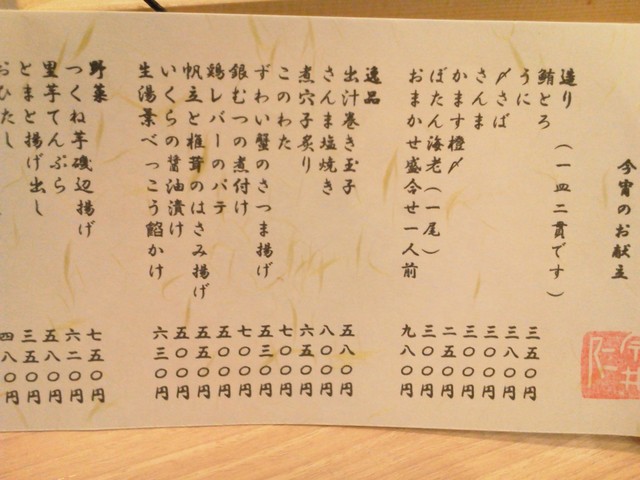 今宵のお献立
造り（一皿二貫です）
鮪とろ 三五〇円
うに 三八〇円
〆さば 三〇〇円
さんま 三〇〇円
かます橙〆 二五〇円
ぼたん海老（一尾） 三〇〇円
おまかせ盛合せ一人前 九八〇円
逸品
出汁巻き玉子 五八〇円
さんま塩焼き 八〇〇円
煮穴子炙り 六五〇円
このわた 七〇〇円
ずわい蟹のさつま揚げ 五三〇円
銀むつの煮付け 七〇〇円
鶏レバーのパテ 五〇〇円
帆立と椎茸のはさみ揚げ 五五〇円
いくらの醤油漬け 五〇〇円
生湯葉べっこう餡かけ 六三〇円
野菜
つくね芋磯辺揚げ 七五〇円
里芋てんぷら 六二〇円
とまと揚げ出し 五八〇円
おひたし 三五〇円
四八〇円